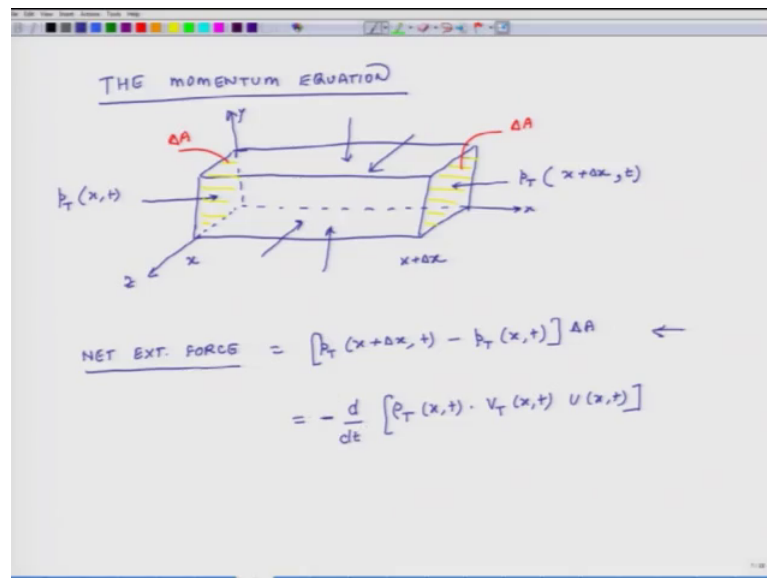 THE MOMENTUM EQUATION
y
ΔA
ΔA
p_T (x,t)
p_T (x+Δx, t)
x
x
x+Δx
z
NET EXT. FORCE = [p_T (x+Δx, t) - p_T (x,t)] ΔA ←
= - d/dt [ρ_T (x,t) · V_T (x,t) U(x,t)]